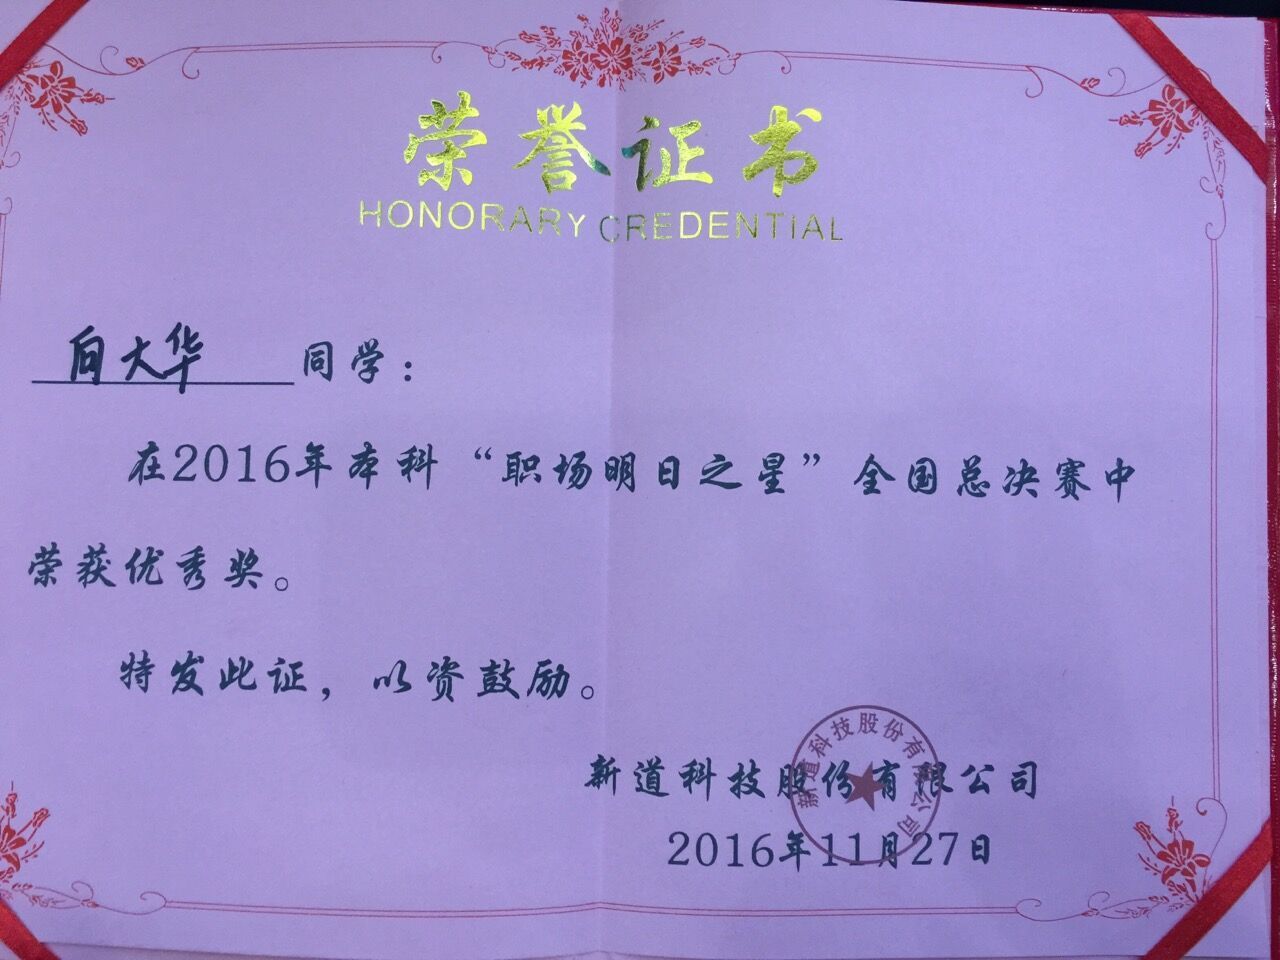 荣誉证书
HONORARY CREDENTIAL
向大华 同学：
在2016年本科“职场明日之星”全国总决赛中
荣获优秀奖。
特发此证，以资鼓励。
新道科技股份有限公司
新道科技股份有限公司
2016年11月27日